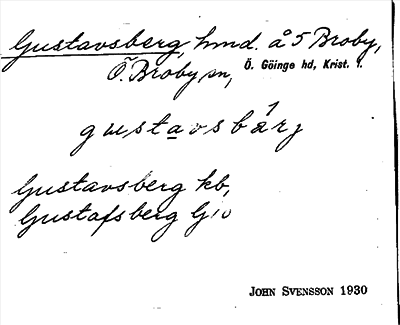 Gustavsberg, hmd. å 5 Broby,
Ö. Broby sn, Ö. Göinge hd, Krist. l.
gustavsbárj
Gustavsberg kb,
Gustafsberg G10
JOHN SVENSSON 1930